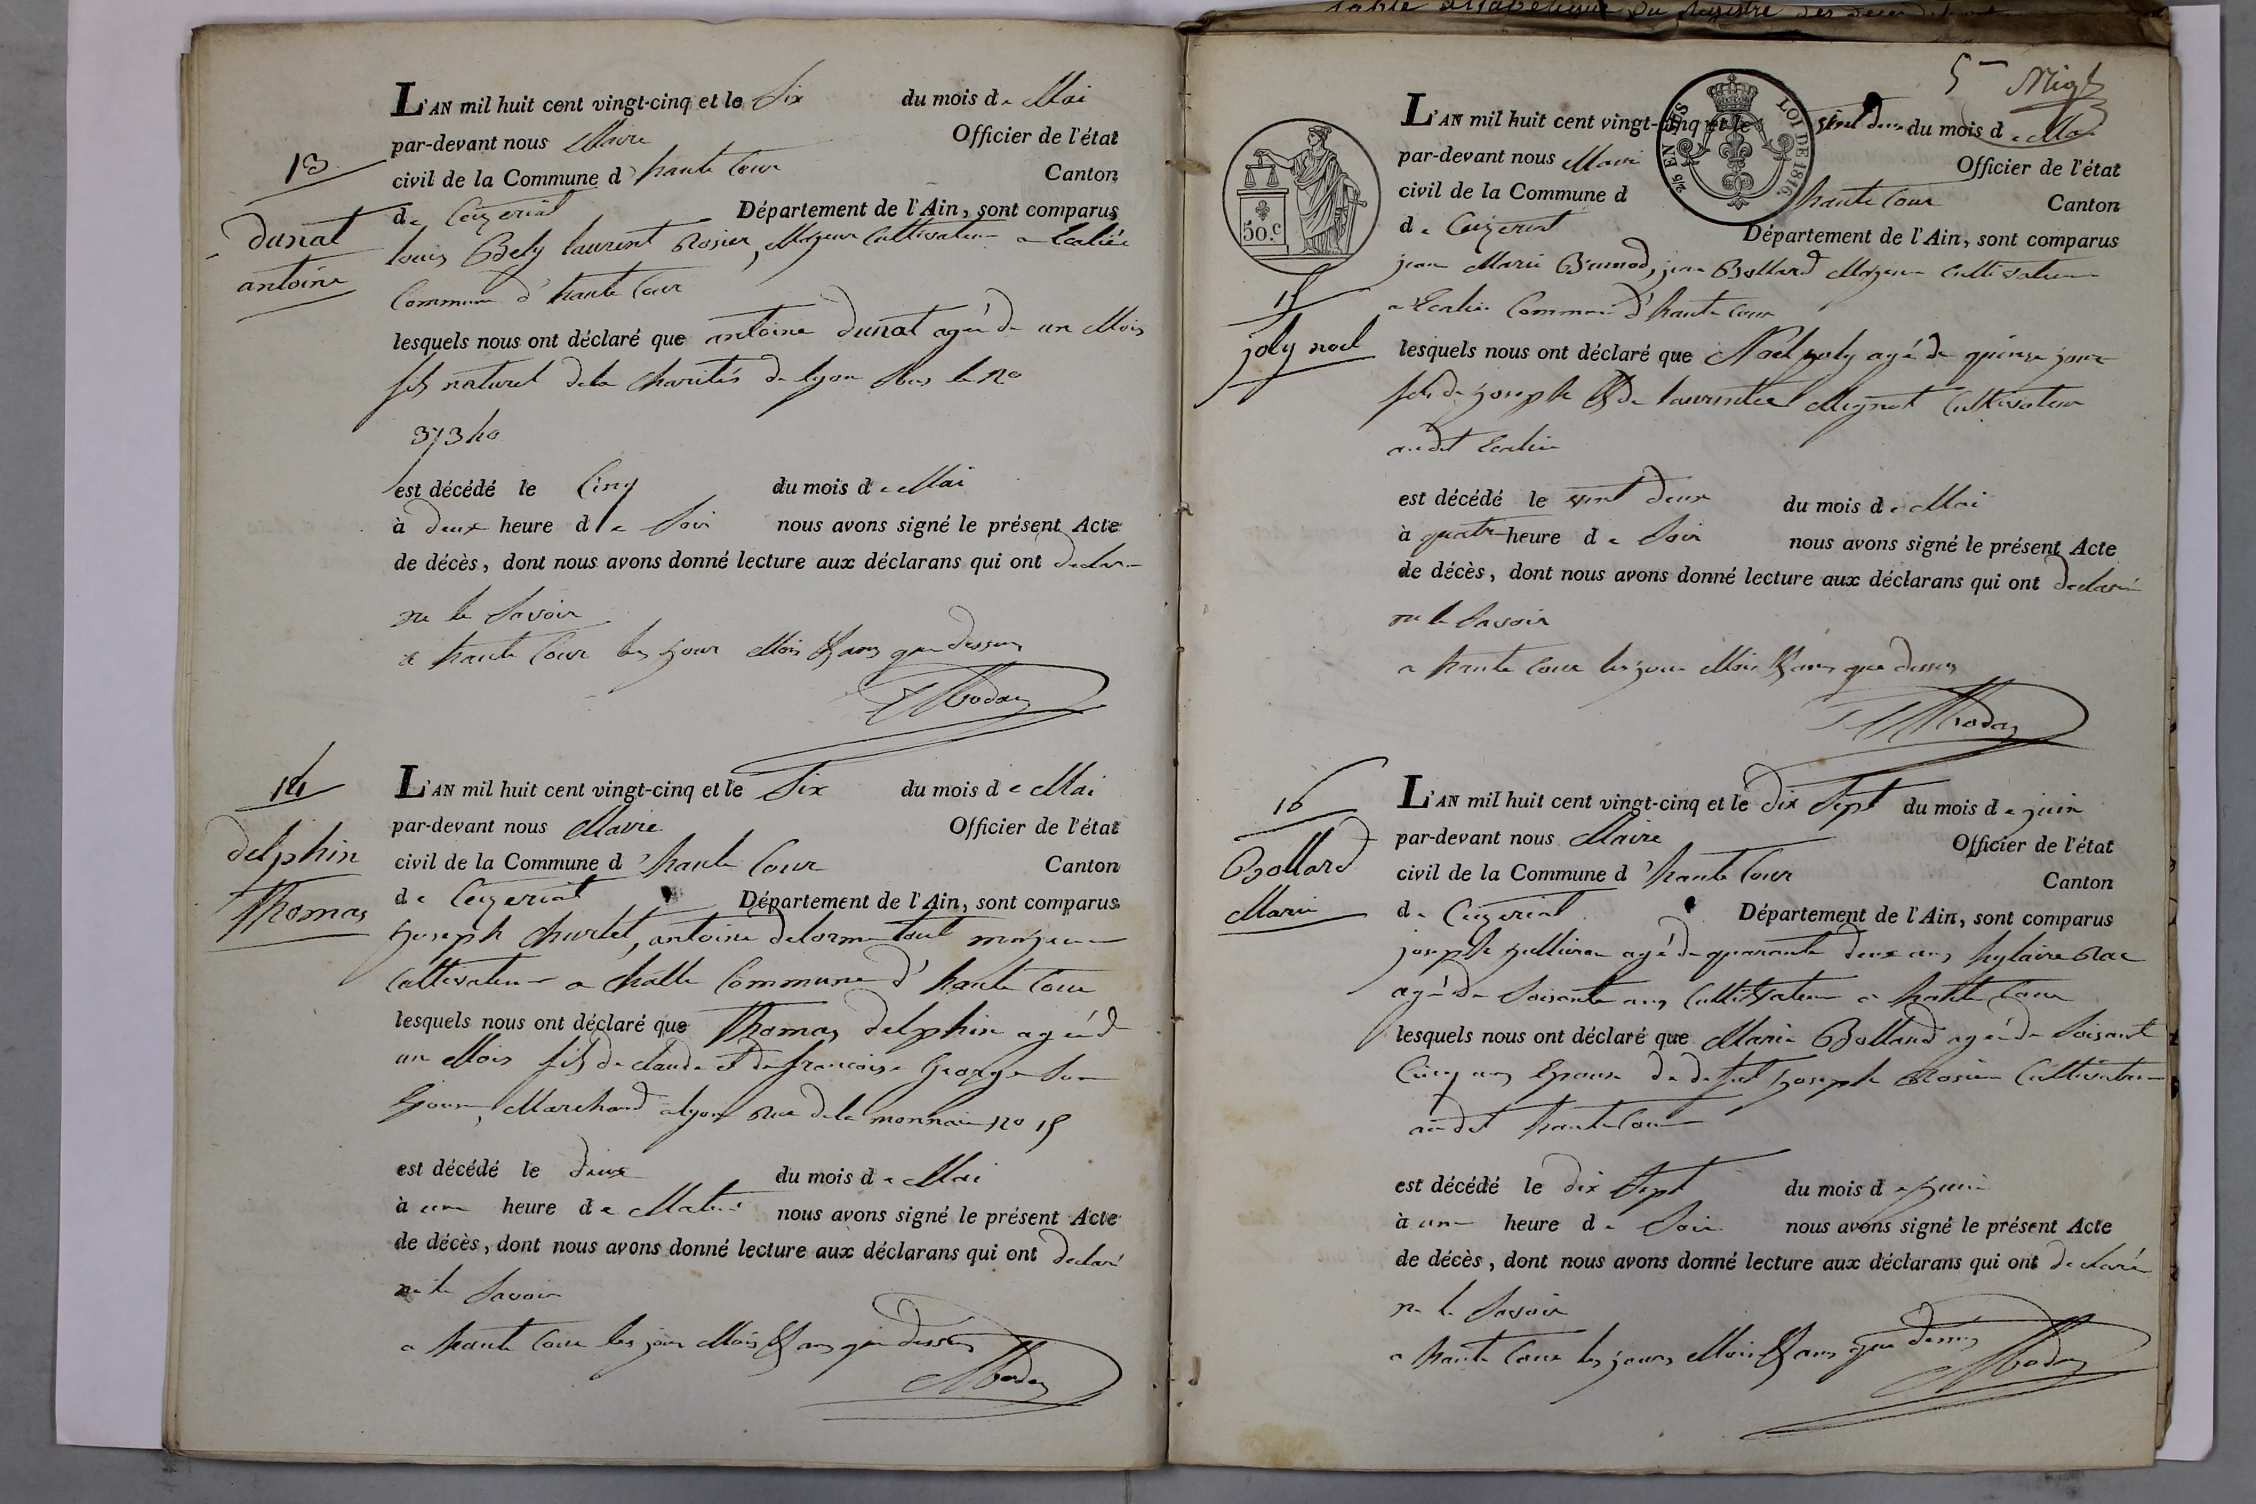 13
dunat
antoine
L'AN mil huit cent vingt-cinq et le Six du mois de Mai
par-devant nous Maire Officier de l'état
civil de la Commune d'haute Cour Canton
de Ceizeriat Département de l'Ain, sont comparus
louis Bely laurent Rosier, Majeur Cultivateur a
Commune d'haute Cour
lesquels nous ont déclaré que antoine dunat agé de un Mois
fils naturel de la Charités de lyon Sous le no
37340
est décédé le Cinq du mois de Mai
à deux heure de Soir nous avons signé le présent Acte
de décès, dont nous avons donné lecture aux déclarans qui ont
ne le Savoir
a haute Cour les jour Mois & ans que dessus
14
delphin
Thomas
L'AN mil huit cent vingt-cinq et le Six du mois de Mai
par-devant nous Maire Officier de l'état
civil de la Commune d'haute Cour Canton
de Ceizeriat Département de l'Ain, sont comparus
joseph, antoine delorme tout majeur
Cultivateur a Challe Commune d'haute Cour
lesquels nous ont déclaré que Thomas delphin agé d
un Mois fils de claude et de francoise George Son
Epouse, Marchand a lyon Rue de la monnaie no 15
est décédé le deux du mois de Mai
à une heure de Matin nous avons signé le présent Acte
de décès, dont nous avons donné lecture aux déclarans qui ont declaré
ne le Savoir
a haute Cour les jour Mois & ans que dessus
5
LOI DE 1816.
50.c
15
joly noel
L'AN mil huit cent vingt-cinq et le vint deux du mois de Mai
par-devant nous Maire Officier de l'état
civil de la Commune d haute Cour Canton
de Ceizeriat Département de l'Ain, sont comparus
jean Marie, jean Bollard Majeur Cultivateur
a Commune d'haute Cour
lesquels nous ont déclaré que Noël joly agé de quinze jour
fils de joseph & de laurentce Mignot Cultivateur
audit
est décédé le vint deux du mois de Mai
à quatre heure de Soir nous avons signé le présent Acte
de décès, dont nous avons donné lecture aux déclarans qui ont declaré
ne le Savoir
a haute Cour les jour Mois & ans que dessus
16
Bollard
Marie
L'AN mil huit cent vingt-cinq et le dix Sept du mois de juin
par-devant nous Maire Officier de l'état
civil de la Commune d'haute Cour Canton
de Ceizeriat Département de l'Ain, sont comparus
joseph agé de quarante deux ans hylaire
agé de Soisante ans Cultivateur a haute Cour
lesquels nous ont déclaré que Marie Bollard agé de Soisante
Cinq ans Epouse de defut joseph Rosier Cultivateur
audit haute Cour
est décédé le dix Sept du mois de juin
à une heure de Soir nous avons signé le présent Acte
de décès, dont nous avons donné lecture aux déclarans qui ont declaré
ne le Savoir
a haute Cour les jours Mois & ans que dessus